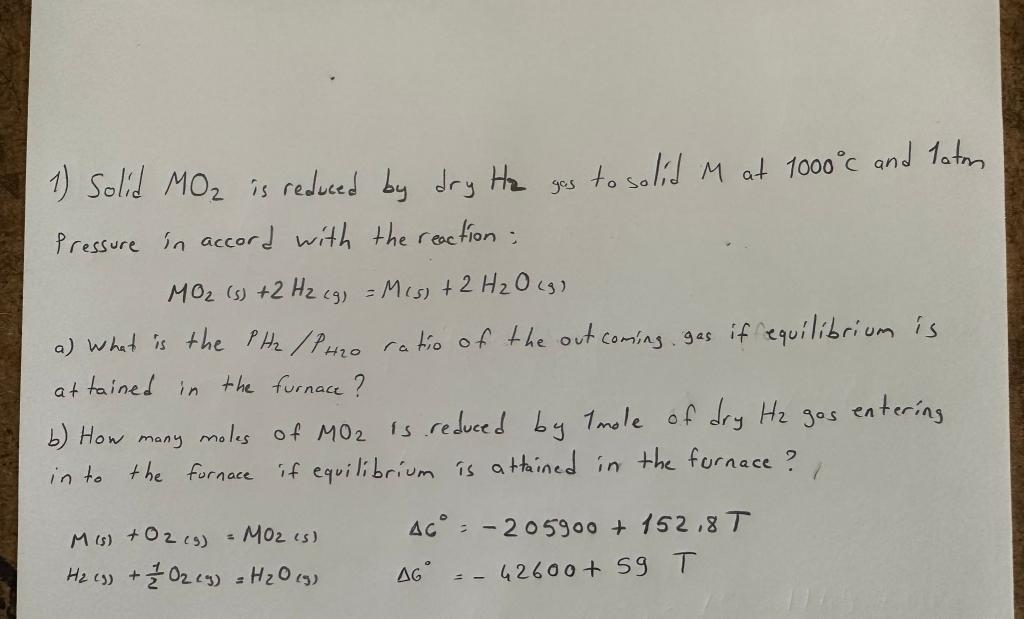 1) Solid MO2 is reduced by dry H2 gas to solid M at 1000°C and 1atm
Pressure in accord with the reaction :
MO2 (s) +2 H2 (g) = M(s) + 2 H2O (g)
a) What is the PH2/PH2O ratio of the out coming gas if equilibrium is
attained in the furnace ?
b) How many moles of MO2 is reduced by 1mole of dry H2 gas entering
in to the furnace if equilibrium is attained in the furnace ?
M(s) + O2 (g) = MO2 (s) ΔG° = - 205900 + 152,8 T
H2 (g) + 1/2 O2 (g) = H2O (g) ΔG° = - 42600 + 59 T